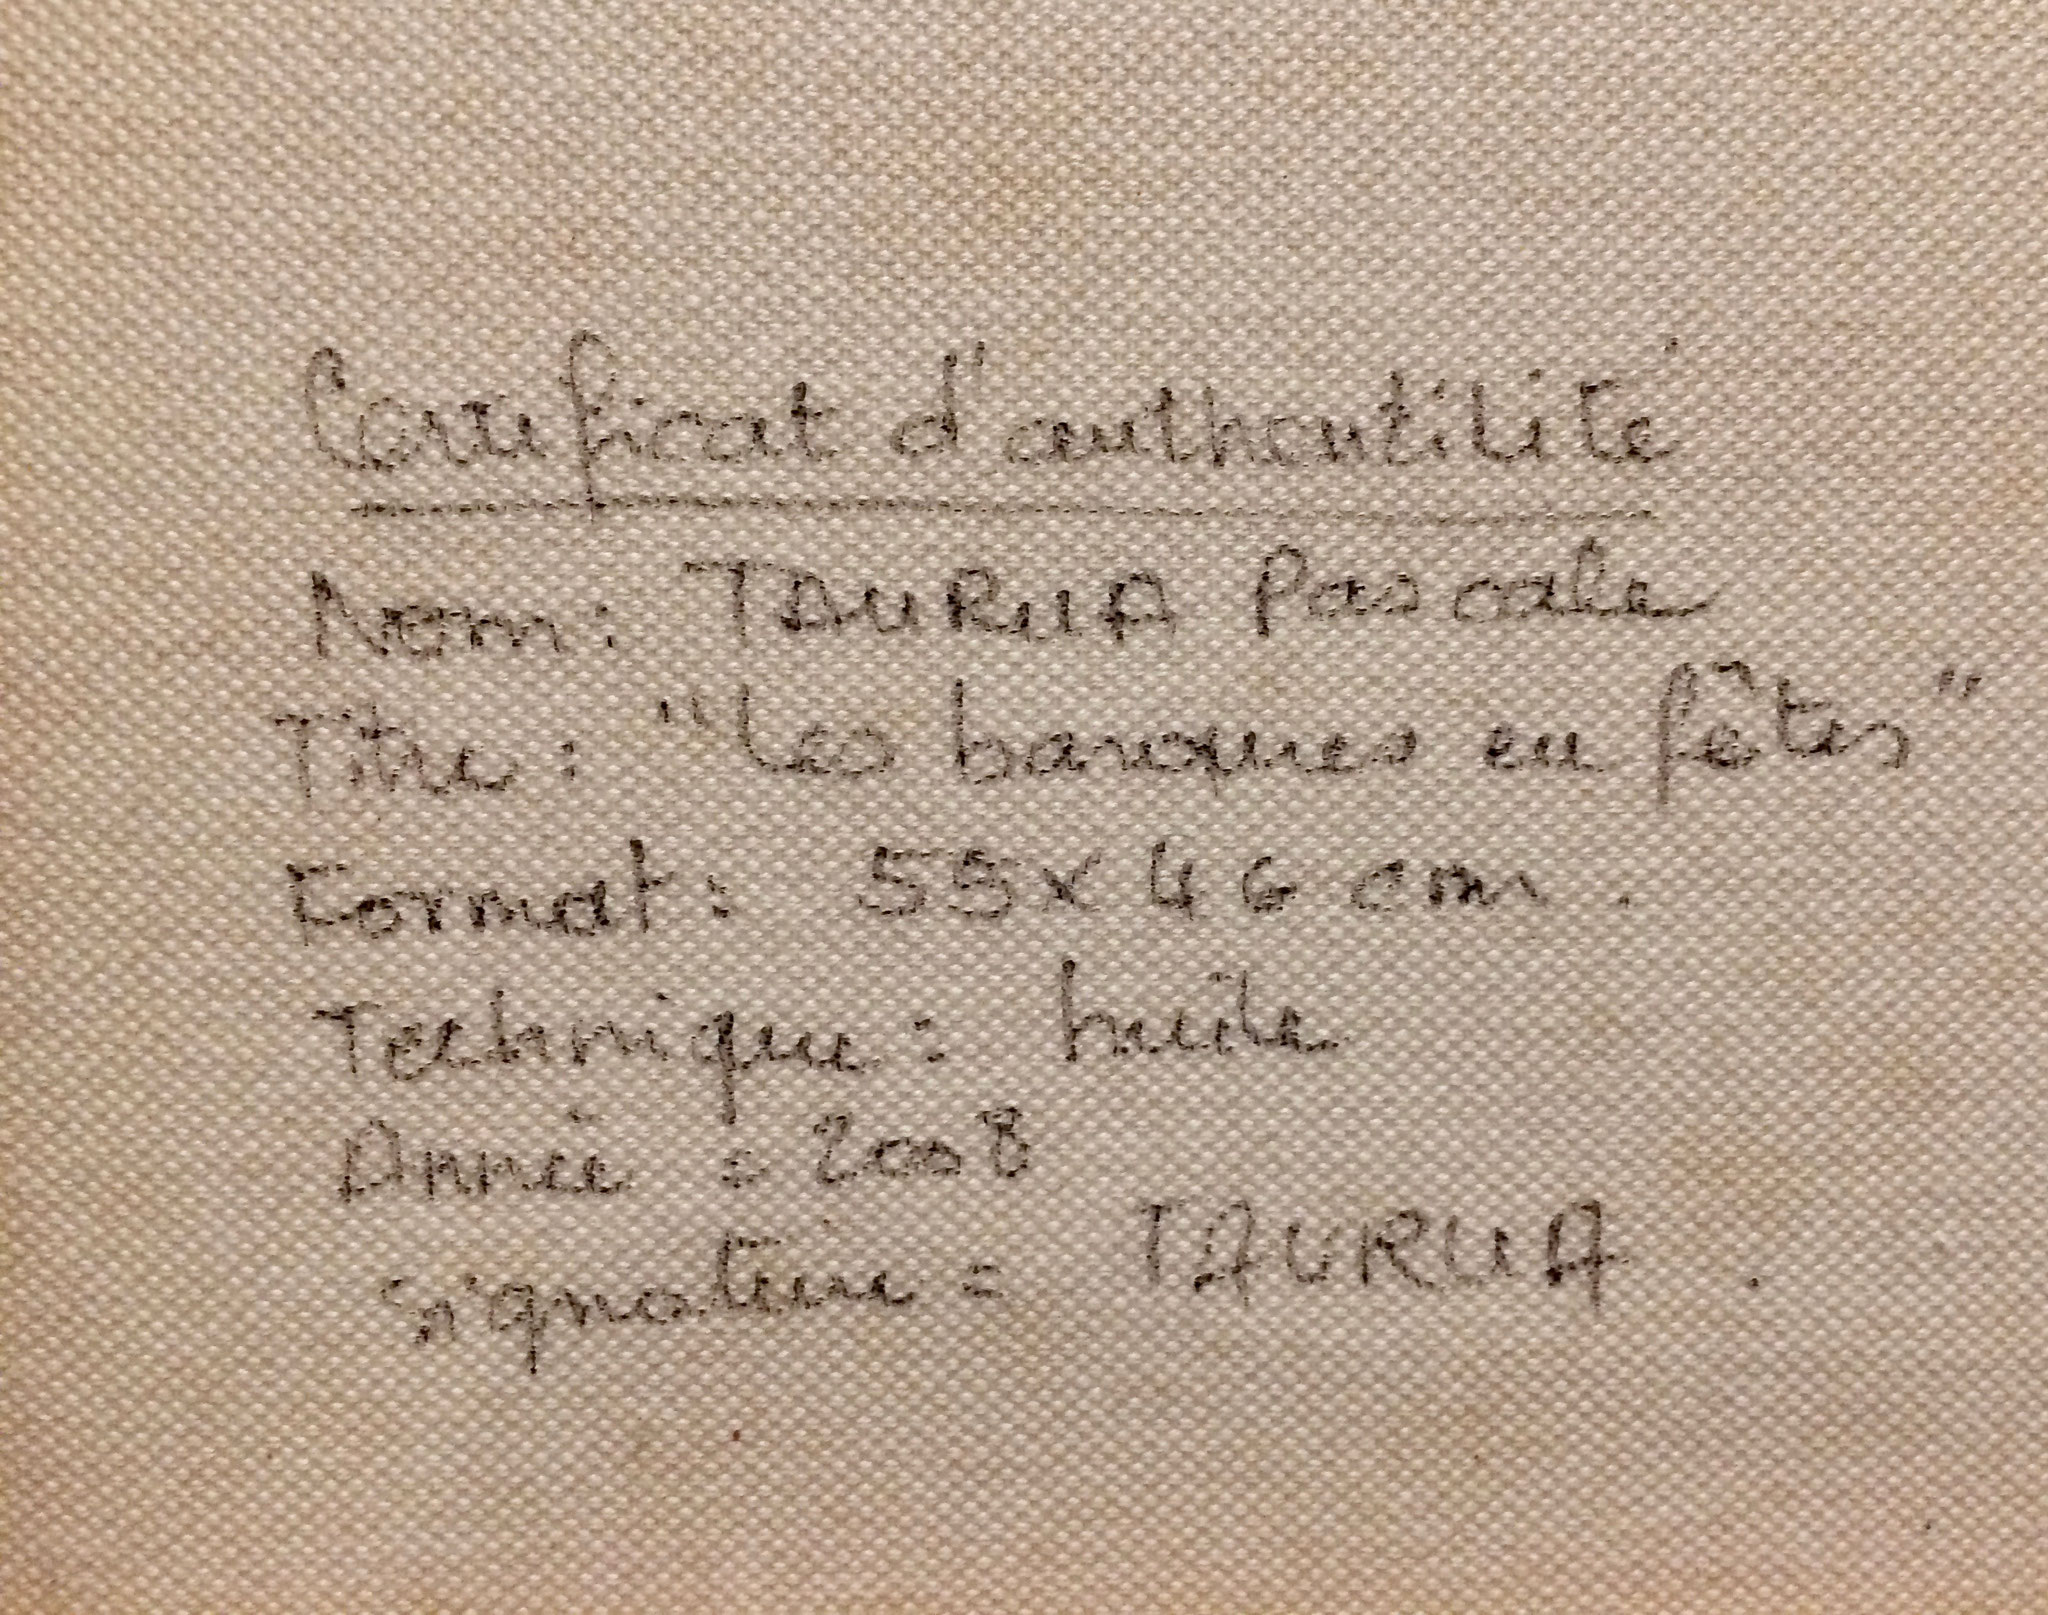 Certificat d'authentilité
Nom : TAURUA Pascale
Titre : "Les barques en fêtes"
Format : 55 x 46 cm.
Technique : huile
Année : 2008
signature = TAURUA.